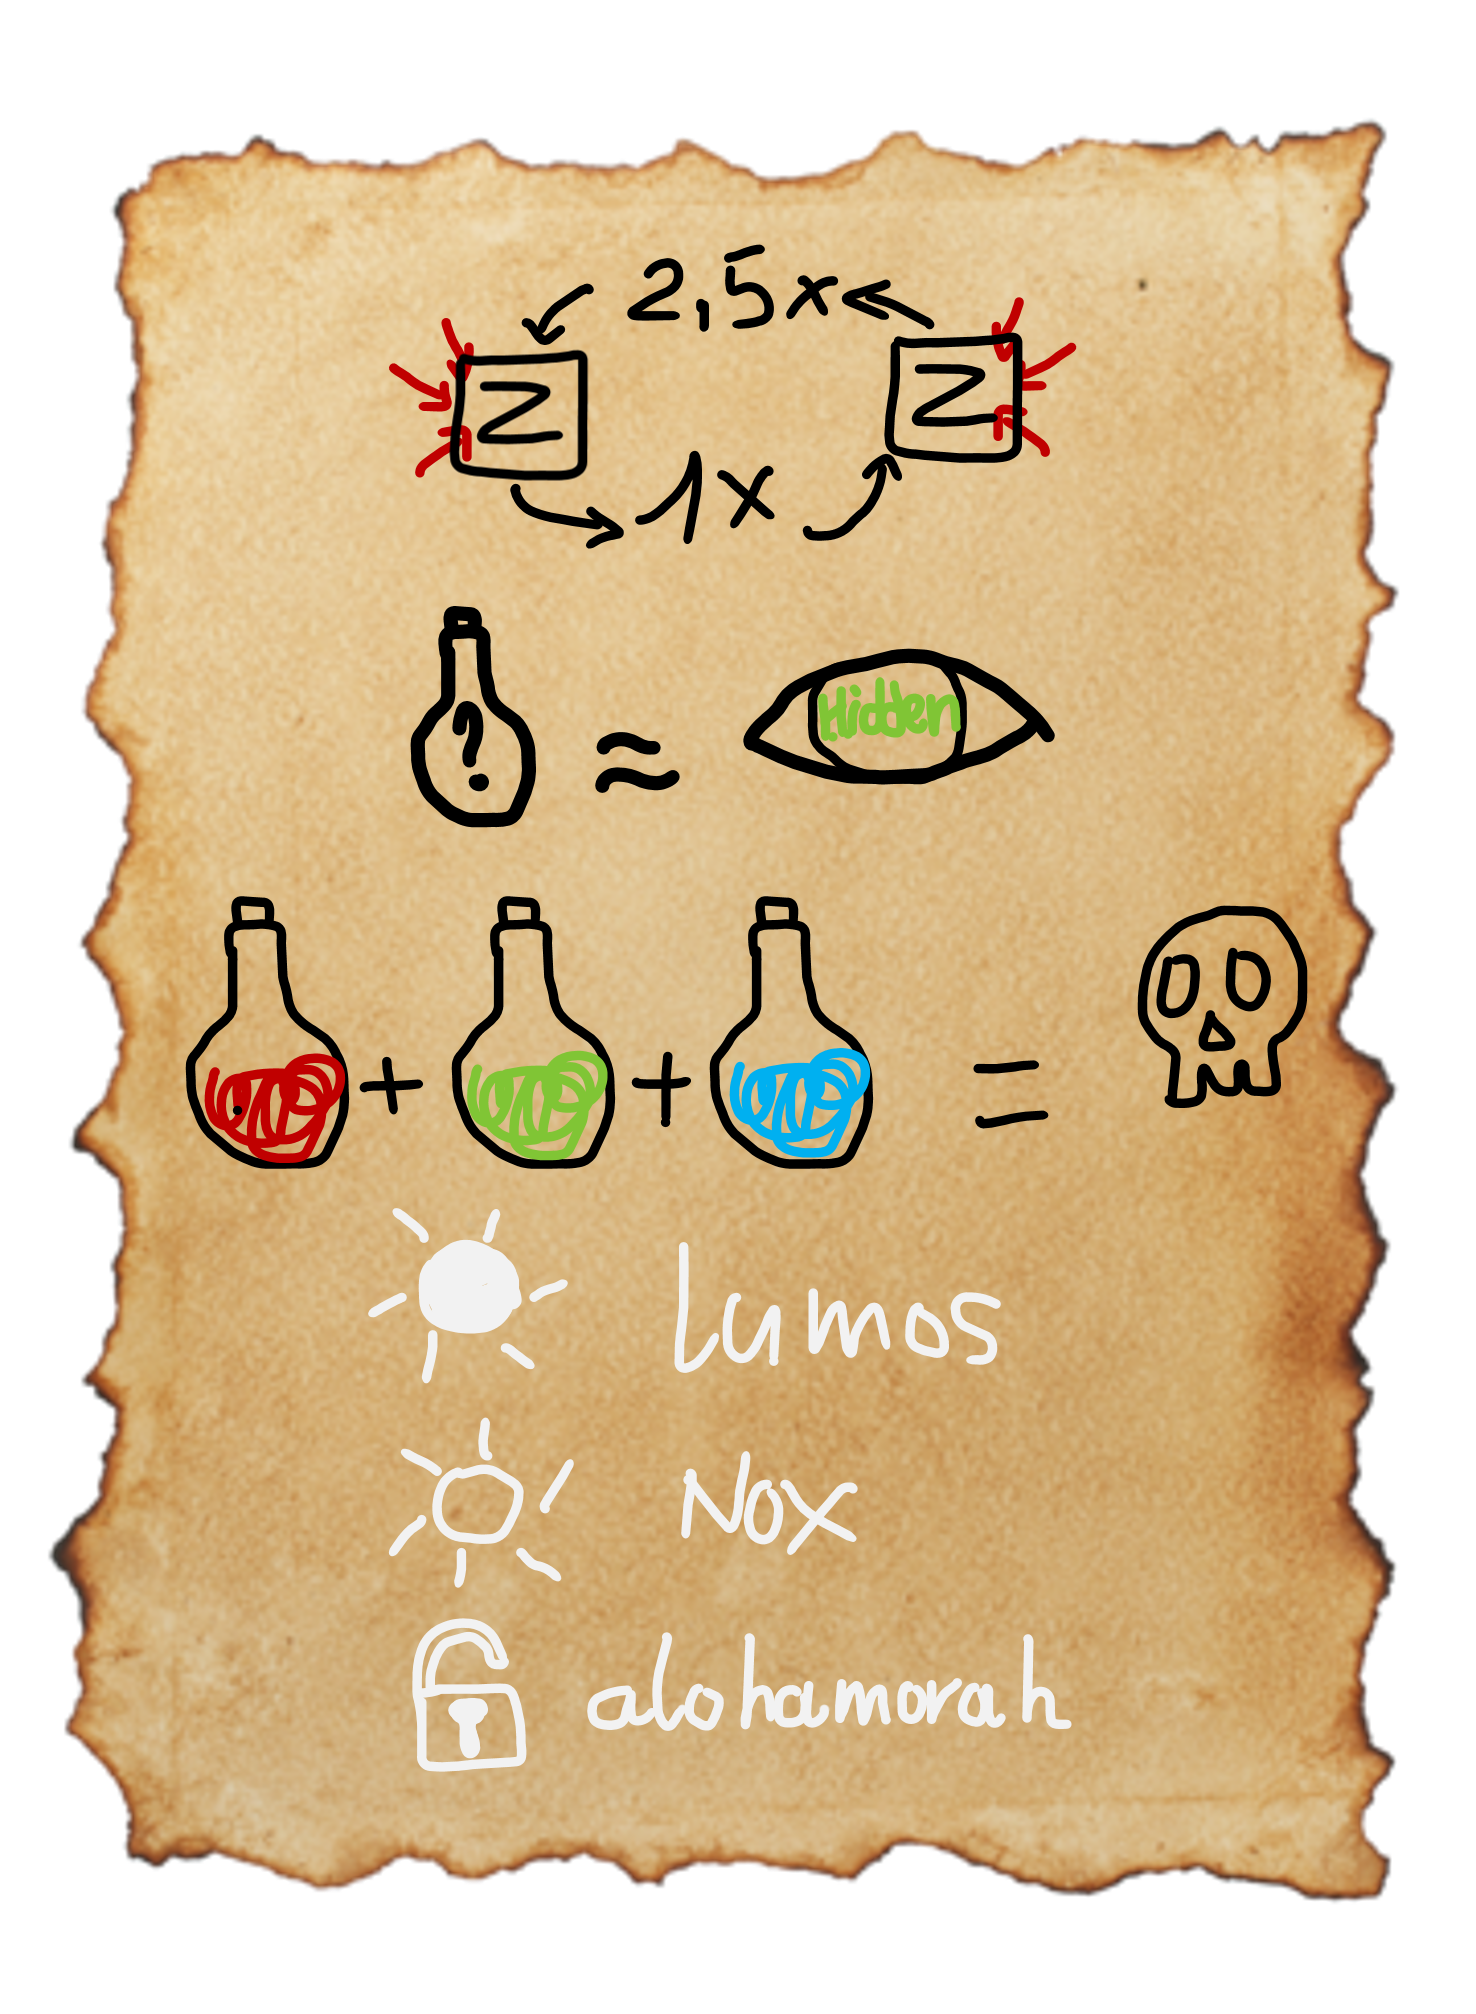 2,5x
Z Z
1x
? ≈ Hidden
+ + =
Lumos
Nox
alohamorah